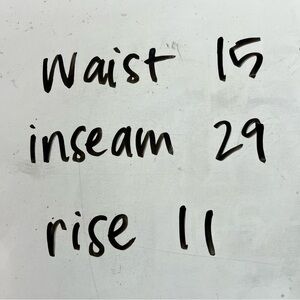 waist 15
inseam 29
rise 11